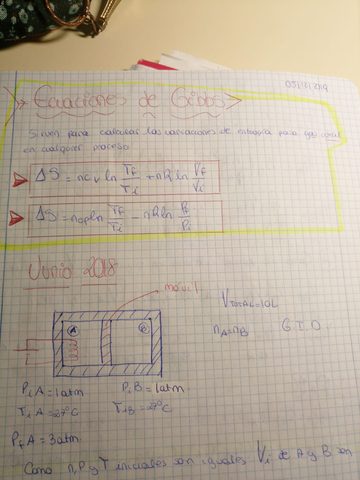 05/11/2019
Ecuaciones de Gibbs
Sirven para calcular las variaciones de entropía para gas ideal
en cualquier proceso
ΔS = ncv ln Tf/Ti + nR ln Vf/Vi
ΔS = ncp ln Tf/Ti - nR ln Pf/Pi
Junio 2018
móvil
VTOTAL = 10L
A
B
nA = nB G.I.D
PiA = 1atm PiB = 1atm
TiA = 27ºC TiB = 27ºC
PfA = 3atm
Como n, P y T iniciales son iguales Vi de A y B son